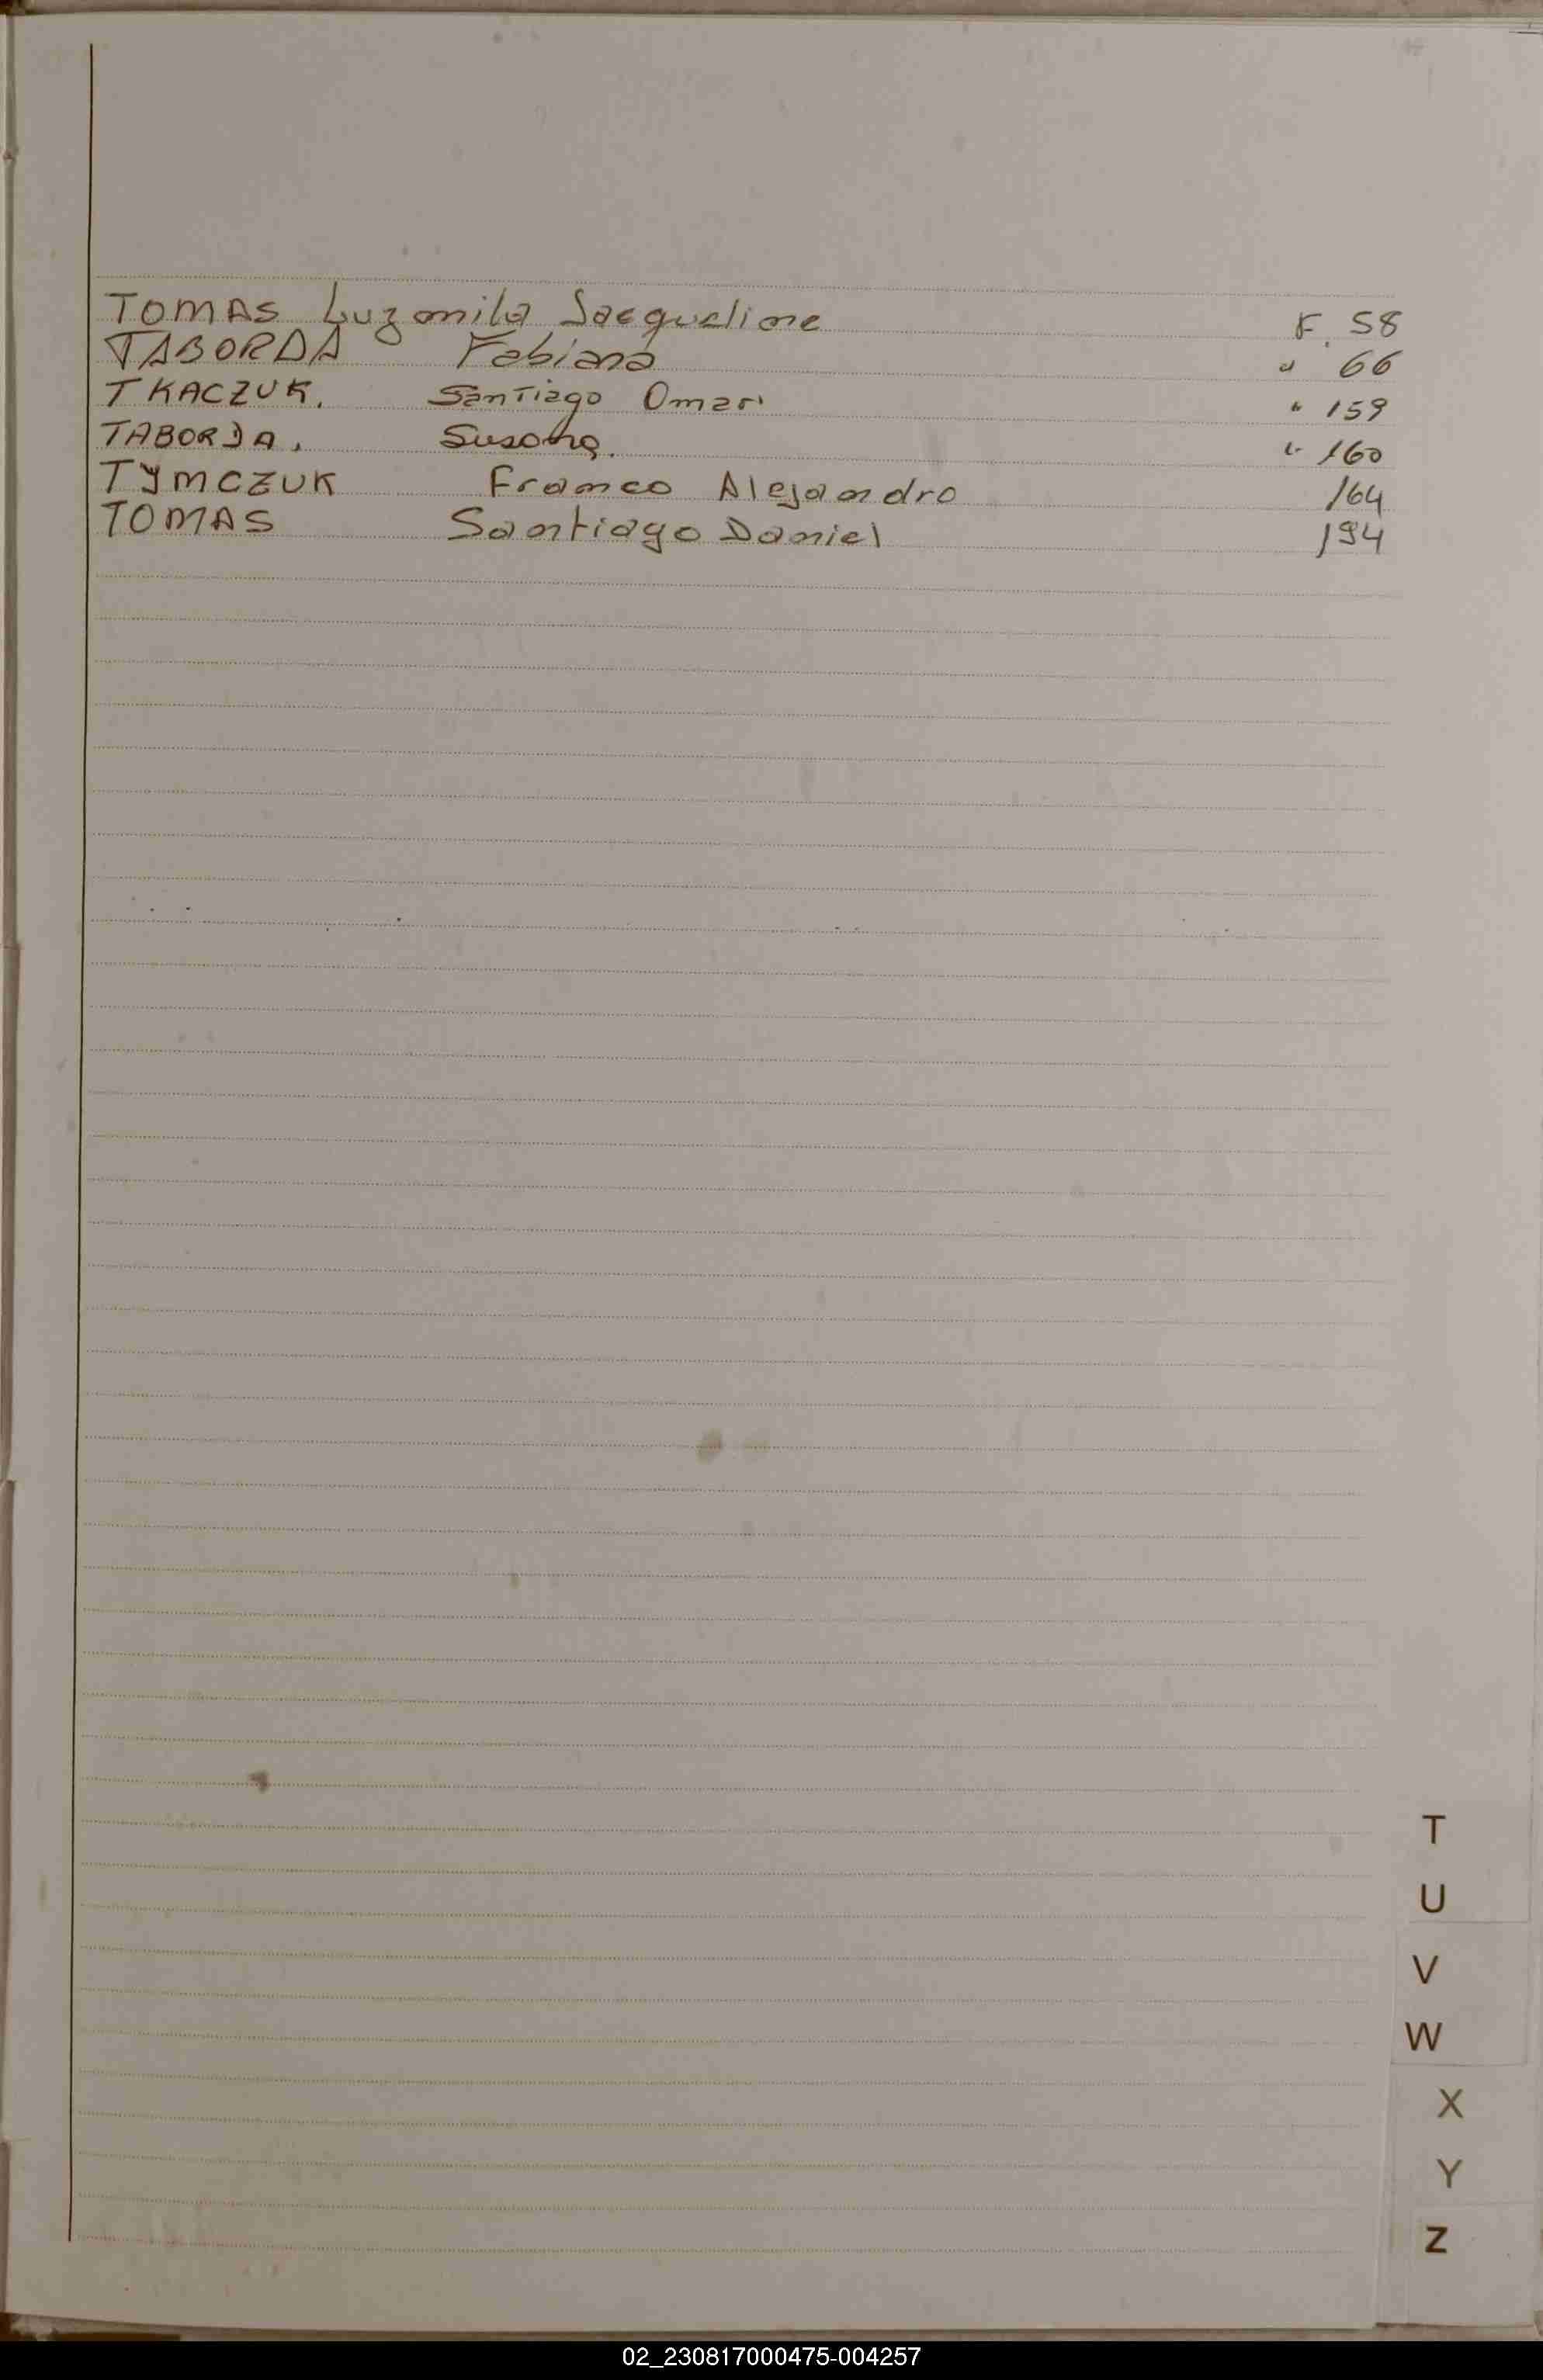 TOMAS Luzmila Jacqueline F. 58
TABORDA Fabiana " 66
TKACZUK. Santiago Omar " 159
TABORDA. Susana. " 160
TYMCZUK Franco Alejandro 164
TOMAS Santiago Daniel 194
T
U
V
W
X
Y
Z
02_230817000475-004257